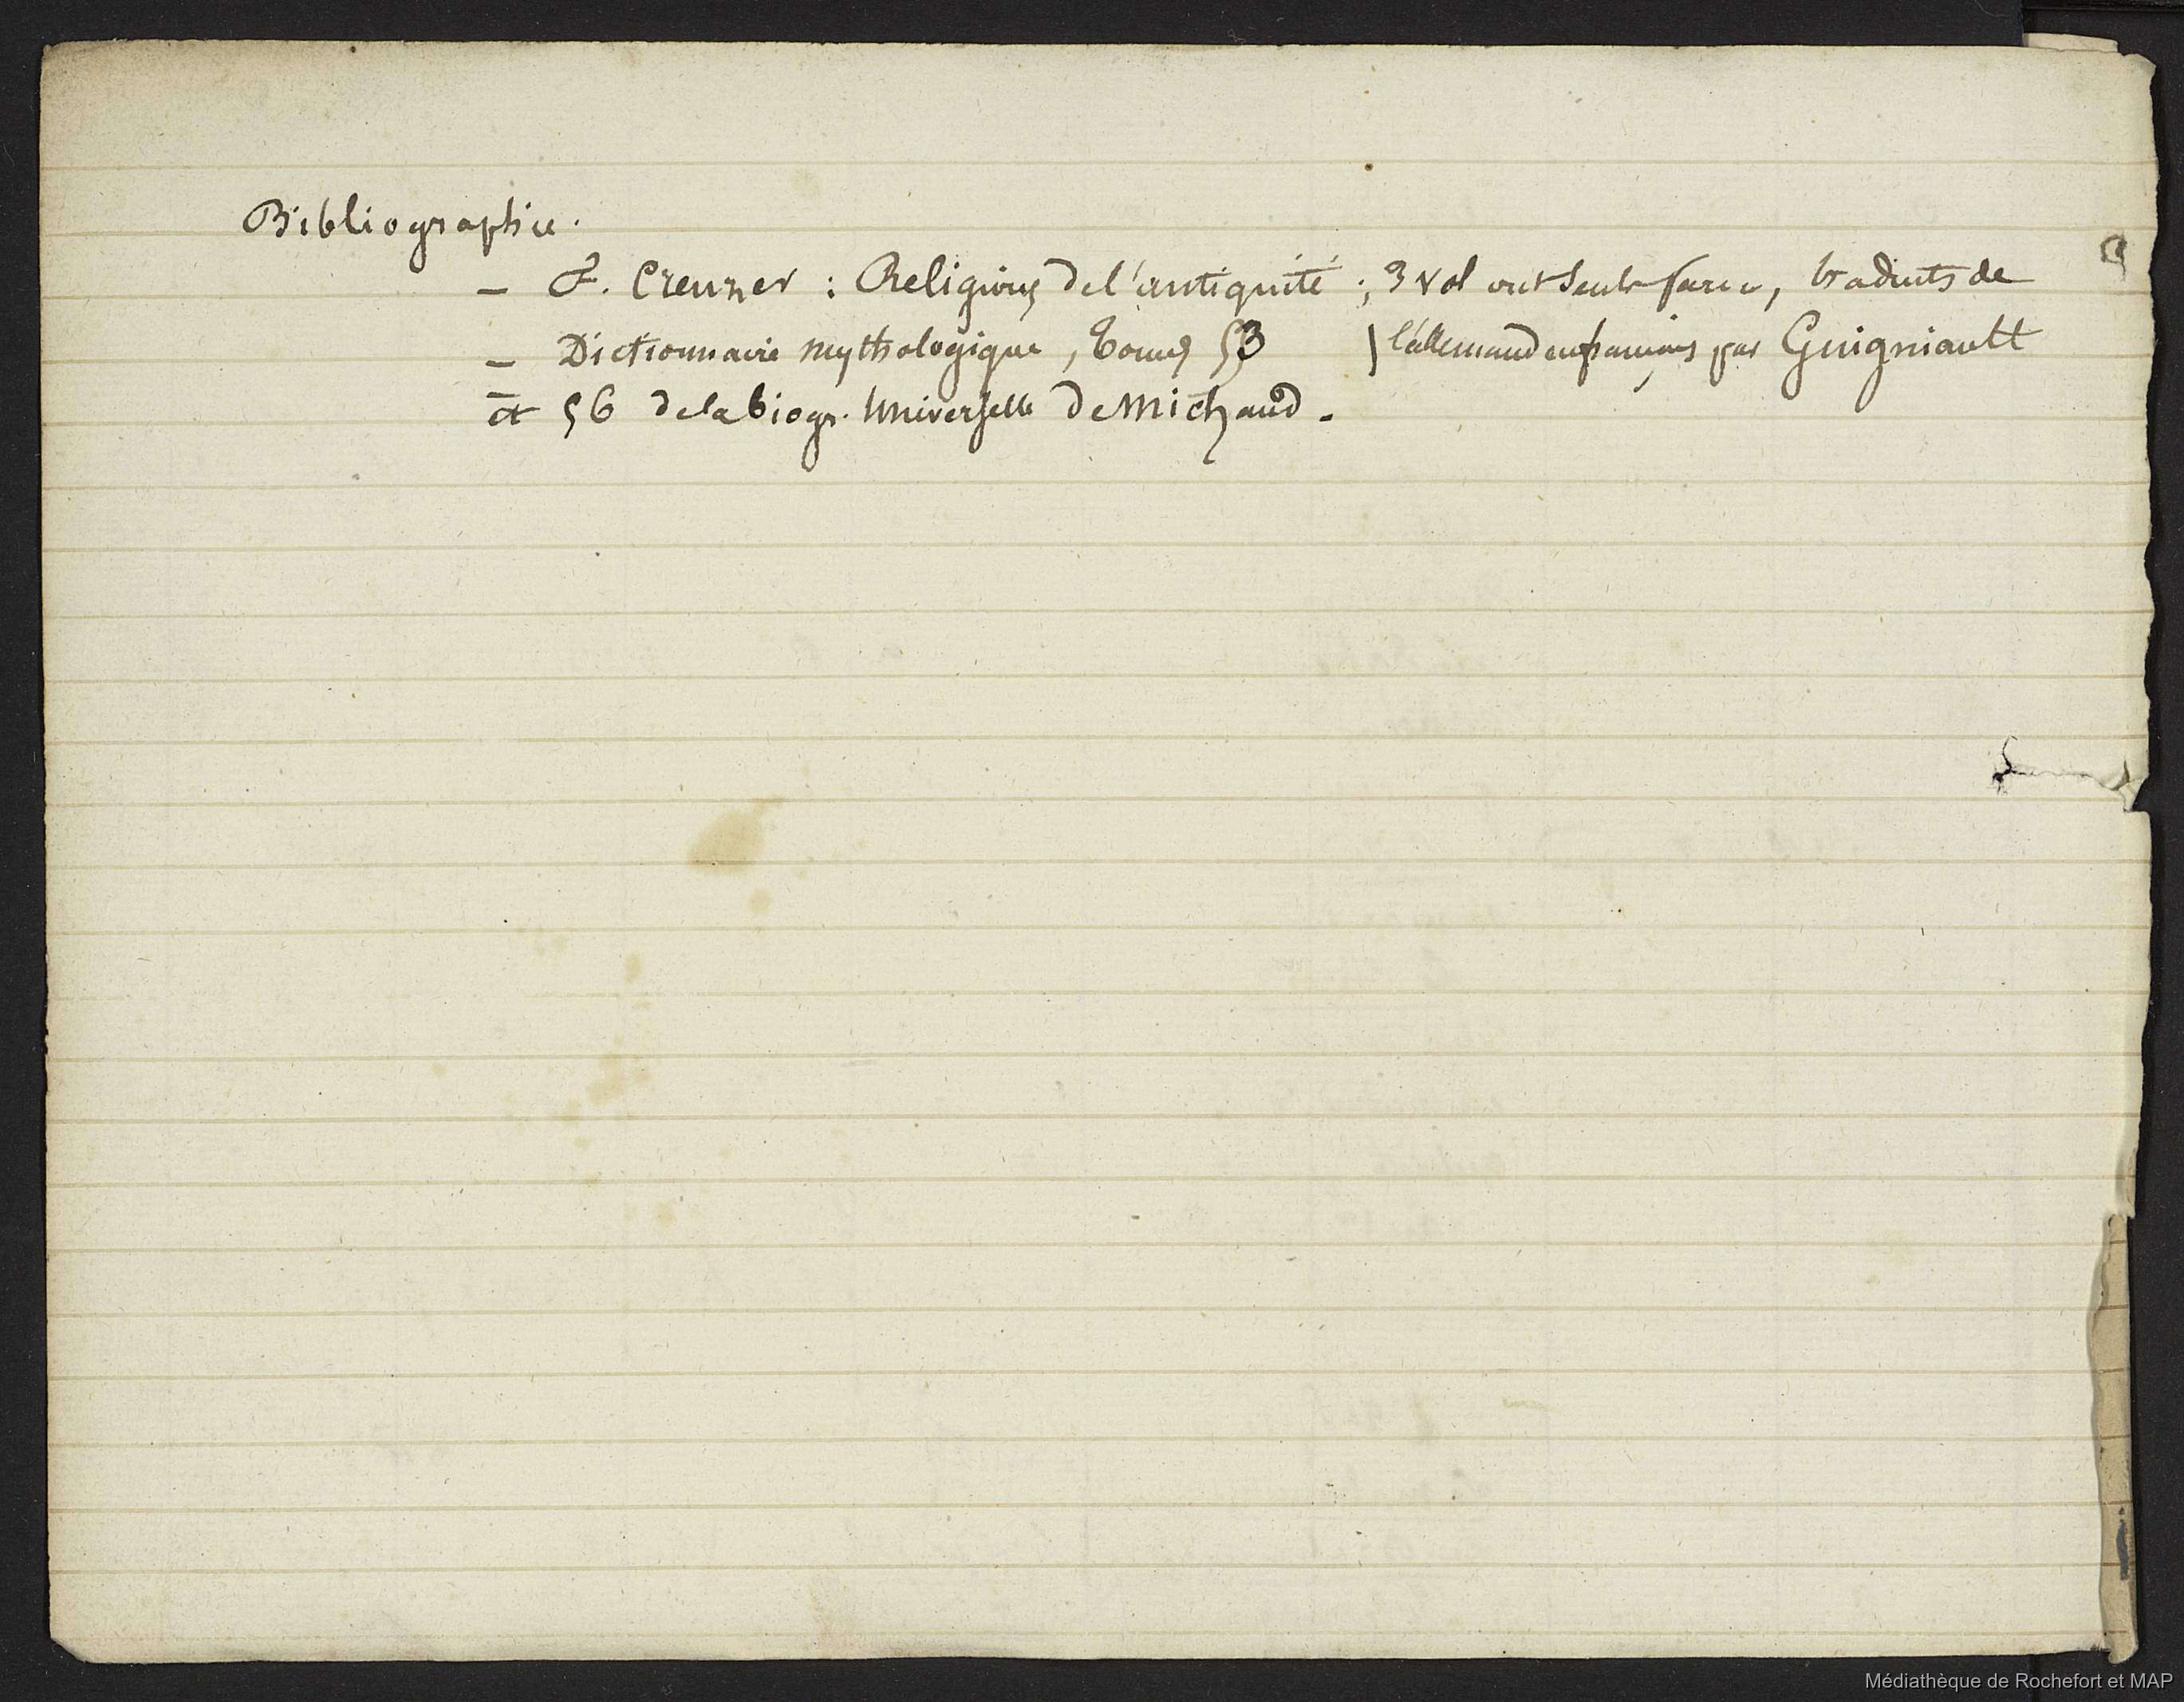 Bibliographie.
— F. Creuzer : Religions de l'antiquité ; 3 vol ont seuls paru, traduits de
l'allemand en français par Guigniault
— Dictionnaire mythologique, Tomes 53
et 56 de la biogr. Universelle de Michaud.
Médiathèque de Rochefort et MAP